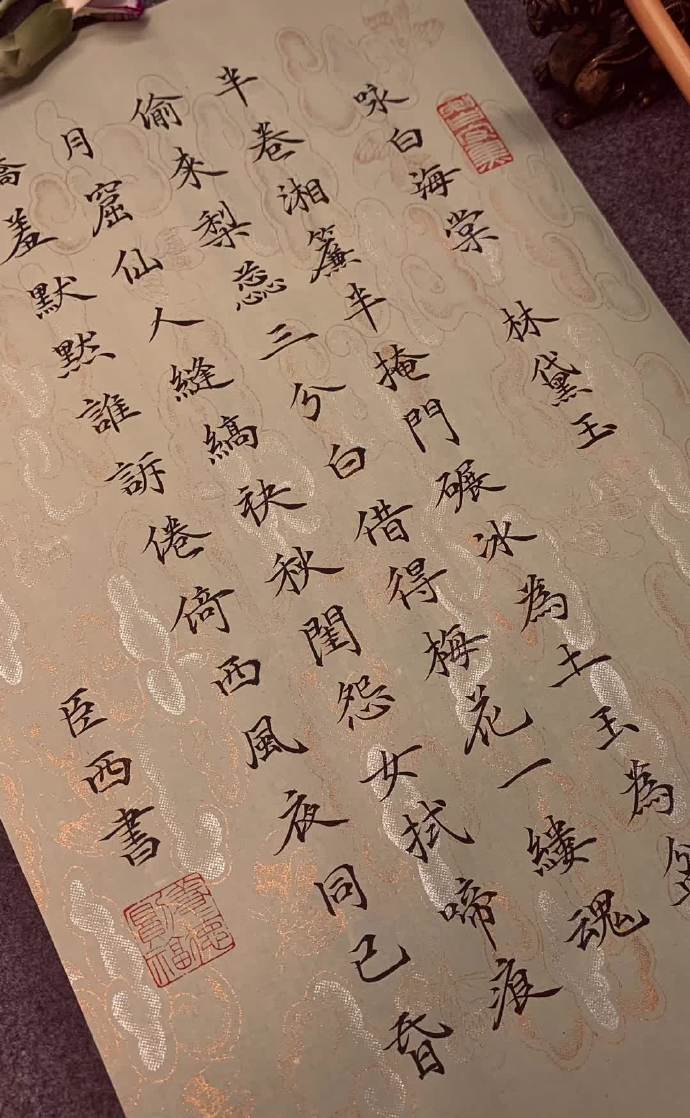 咏白海棠 林黛玉
半卷湘簾半掩門碾冰為土玉為盆
偷來梨蕊三分白借得梅花一縷魂
月窟仙人縫縞袂秋閨怨女拭啼痕
嬌羞默黙誰訴倦倚西風夜同已昏
臣西書